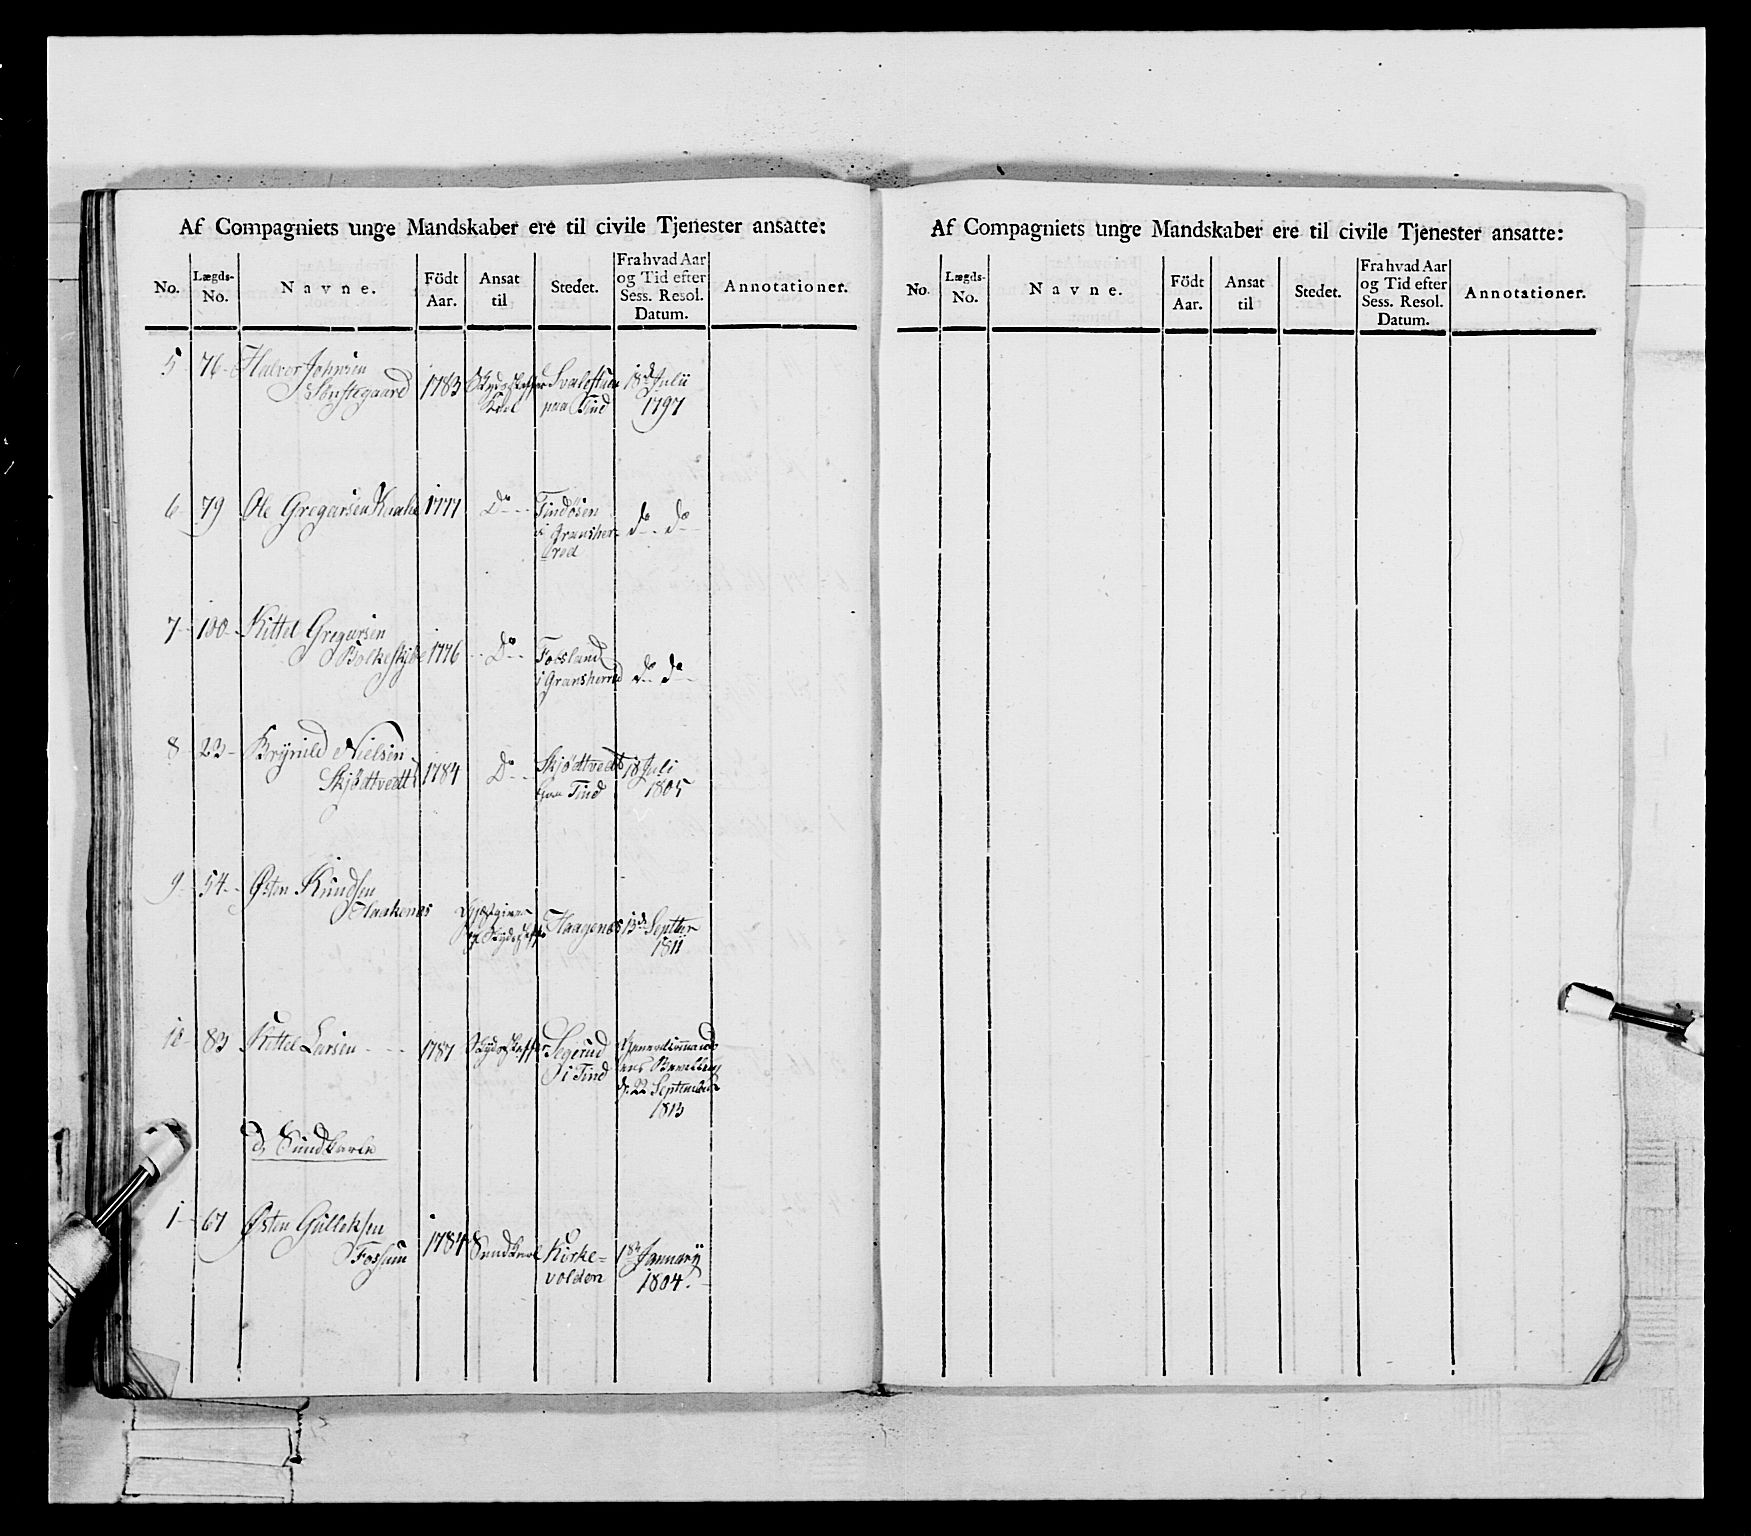 Af Compagniets unge Mandskaber ere til civile Tjenester ansatte:
No. Lægds-No. Navne. Födt Aar. Ansat til Stedet. Fra hvad Aar og Tid efter Sess. Resol. Datum. Annotationer.
5 76 Halvor Johnsen
Sønstegaard 1783 Skydsskaffer Karl Svalestuen paa Tind 18d Julii 1797
6 79 Ole Gregarsen 1777 Do Tindøsen i Gransherred do do
7 100 Kittel Gregarsen
Bolkeskye 1776 Do Fosland i Gransherred do do
8 23 Brynild Nielsen
Skjødtvedt 1784 Do Skjødtvedt paa Tind 18 Juli 1805
9 54 Østen Knudsen
Haakenæs Gjæstgiver og Skydsskaffer Haagenæs 13d Septbr 1811
10 83 Kittel Larsen 1787 Skydsskaffer Segerud i Tind 22 September 1813
d, Sundkarle
1 67 Østen Gulleksen
Fossum 1784 Sundkarl Kirke-
volden 1ste Januarij 1804.
Af Compagniets unge Mandskaber ere til civile Tjenester ansatte:
No. Lægds-No. Navne. Födt Aar. Ansat til Stedet. Fra hvad Aar og Tid efter Sess. Resol. Datum. Annotationer.